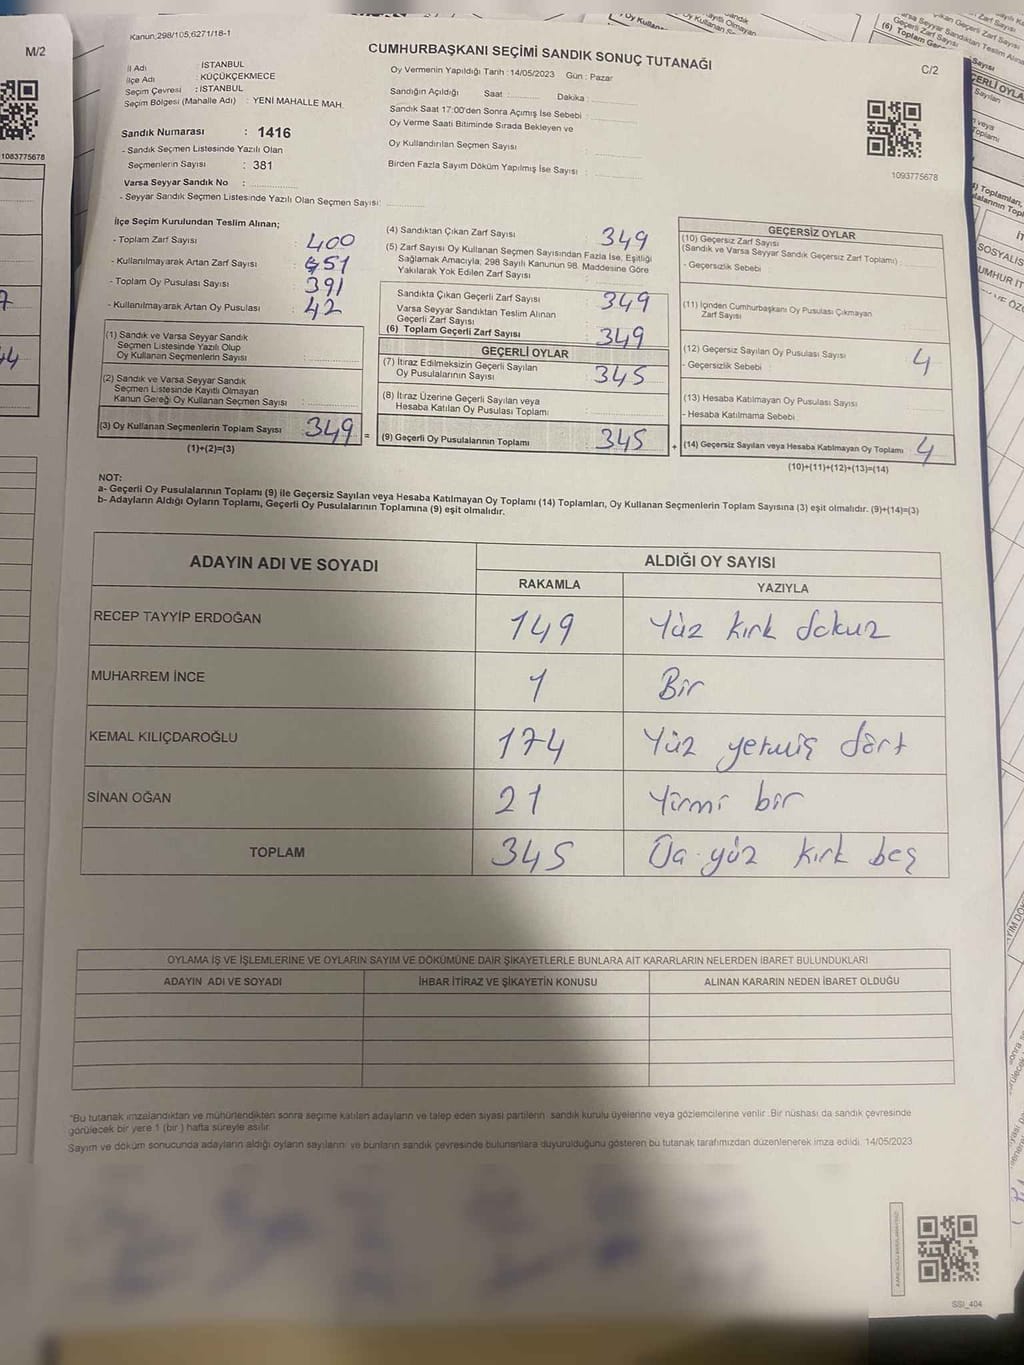 M/2
1083775678
Kanun,298/105,6271/18-1
CUMHURBAŞKANI SEÇİMİ SANDIK SONUÇ TUTANAĞI
C/2
İl Adı : İSTANBUL
İlçe Adı : KÜÇÜKÇEKMECE
Seçim Çevresi : İSTANBUL
Seçim Bölgesi (Mahalle Adı) : YENİ MAHALLE MAH.
Oy Vermenin Yapıldığı Tarih :14/05/2023 Gün : Pazar
Sandığın Açıldığı Saat : Dakika :
Sandık Saat 17:00'den Sonra Açımış İse Sebebi :
Oy Verme Saati Bitiminde Sırada Bekleyen ve
Oy Kullandırılan Seçmen Sayısı :
Birden Fazla Sayım Döküm Yapılmış İse Sayısı :
1093775678
Sandık Numarası : 1416
- Sandık Seçmen Listesinde Yazılı Olan
Seçmenlerin Sayısı : 381
Varsa Seyyar Sandık No :
- Seyyar Sandık Seçmen Listesinde Yazılı Olan Seçmen Sayısı:
İlçe Seçim Kurulundan Teslim Alınan;
- Toplam Zarf Sayısı : 400
- Kullanılmayarak Artan Zarf Sayısı : 51
- Toplam Oy Pusulası Sayısı : 391
- Kullanılmayarak Artan Oy Pusulası : 42
(1) Sandık ve Varsa Seyyar Sandık
Seçmen Listesinde Yazılı Olup
Oy Kullanan Seçmenlerin Sayısı :
(2) Sandık ve Varsa Seyyar Sandık
Seçmen Listesinde Kayıtlı Olmayan
Kanun Gereği Oy Kullanan Seçmen Sayısı :
(3) Oy Kullanan Seçmenlerin Toplam Sayısı 349 =
(1)+(2)=(3)
(4) Sandıktan Çıkan Zarf Sayısı : 349
(5) Zarf Sayısı Oy Kullanan Seçmen Sayısından Fazla İse, Eşitliği
Sağlamak Amacıyla, 298 Sayılı Kanunun 98. Maddesine Göre
Yakılarak Yok Edilen Zarf Sayısı :
Sandıkta Çıkan Geçerli Zarf Sayısı : 349
Varsa Seyyar Sandıktan Teslim Alınan
Geçerli Zarf Sayısı :
(6) Toplam Geçerli Zarf Sayısı : 349
GEÇERLİ OYLAR
(7) İtiraz Edilmeksizin Geçerli Sayılan
Oy Pusulalarının Sayısı : 345
(8) İtiraz Üzerine Geçerli Sayılan veya
Hesaba Katılan Oy Pusulası Toplamı :
(9) Geçerli Oy Pusulalarının Toplamı : 345 +
GEÇERSİZ OYLAR
(10) Geçersiz Zarf Sayısı
(Sandık ve Varsa Seyyar Sandık Geçersiz Zarf Toplamı) :
- Geçersizlik Sebebi :
(11) İçinden Cumhurbaşkanı Oy Pusulası Çıkmayan
Zarf Sayısı :
(12) Geçersiz Sayılan Oy Pusulası Sayısı : 4
- Geçersizlik Sebebi :
(13) Hesaba Katılmayan Oy Pusulası Sayısı :
- Hesaba Katılmama Sebebi :
(14) Geçersiz Sayılan veya Hesaba Katılmayan Oy Toplamı 4
(10)+(11)+(12)+(13)=(14)
NOT:
a- Geçerli Oy Pusulalarının Toplamı (9) ile Geçersiz Sayılan veya Hesaba Katılmayan Oy Toplamı (14) Toplamları, Oy Kullanan Seçmenlerin Toplam Sayısına (3) eşit olmalıdır. (9)+(14)=(3)
b- Adayların Aldığı Oyların Toplamı, Geçerli Oy Pusulalarının Toplamına (9) eşit olmalıdır.
ADAYIN ADI VE SOYADI
ALDIĞI OY SAYISI
RAKAMLA YAZIYLA
RECEP TAYYİP ERDOĞAN 149 Yüz kırk dokuz
MUHARREM İNCE 1 Bir
KEMAL KILIÇDAROĞLU 174 Yüz yetmiş dört
SİNAN OĞAN 21 Yirmi bir
TOPLAM 345 yüz kırk beş
OYLAMA İŞ VE İŞLEMLERİNE VE OYLARIN SAYIM VE DÖKÜMÜNE DAİR ŞİKAYETLERLE BUNLARA AİT KARARLARIN NELERDEN İBARET BULUNDUKLARI
ADAYIN ADI VE SOYADI İHBAR İTİRAZ VE ŞİKAYETİN KONUSU ALINAN KARARIN NEDEN İBARET OLDUĞU
*Bu tutanak imzalandıktan ve mühürlendikten sonra seçime katılan adayların ve talep eden siyasi partilerin sandık kurulu üyelerine veya gözlemcilerine verilir. Bir nüshası da sandık çevresinde
görülecek bir yere 1 (bir) hafta süreyle asılır.
Sayım ve döküm sonucunda adayların aldığı oyların sayılarını ve bunların sandık çevresinde bulunanlara duyurulduğunu gösteren bu tutanak tarafımızdan düzenlenerek imza edildi. 14/05/2023
SSI_404